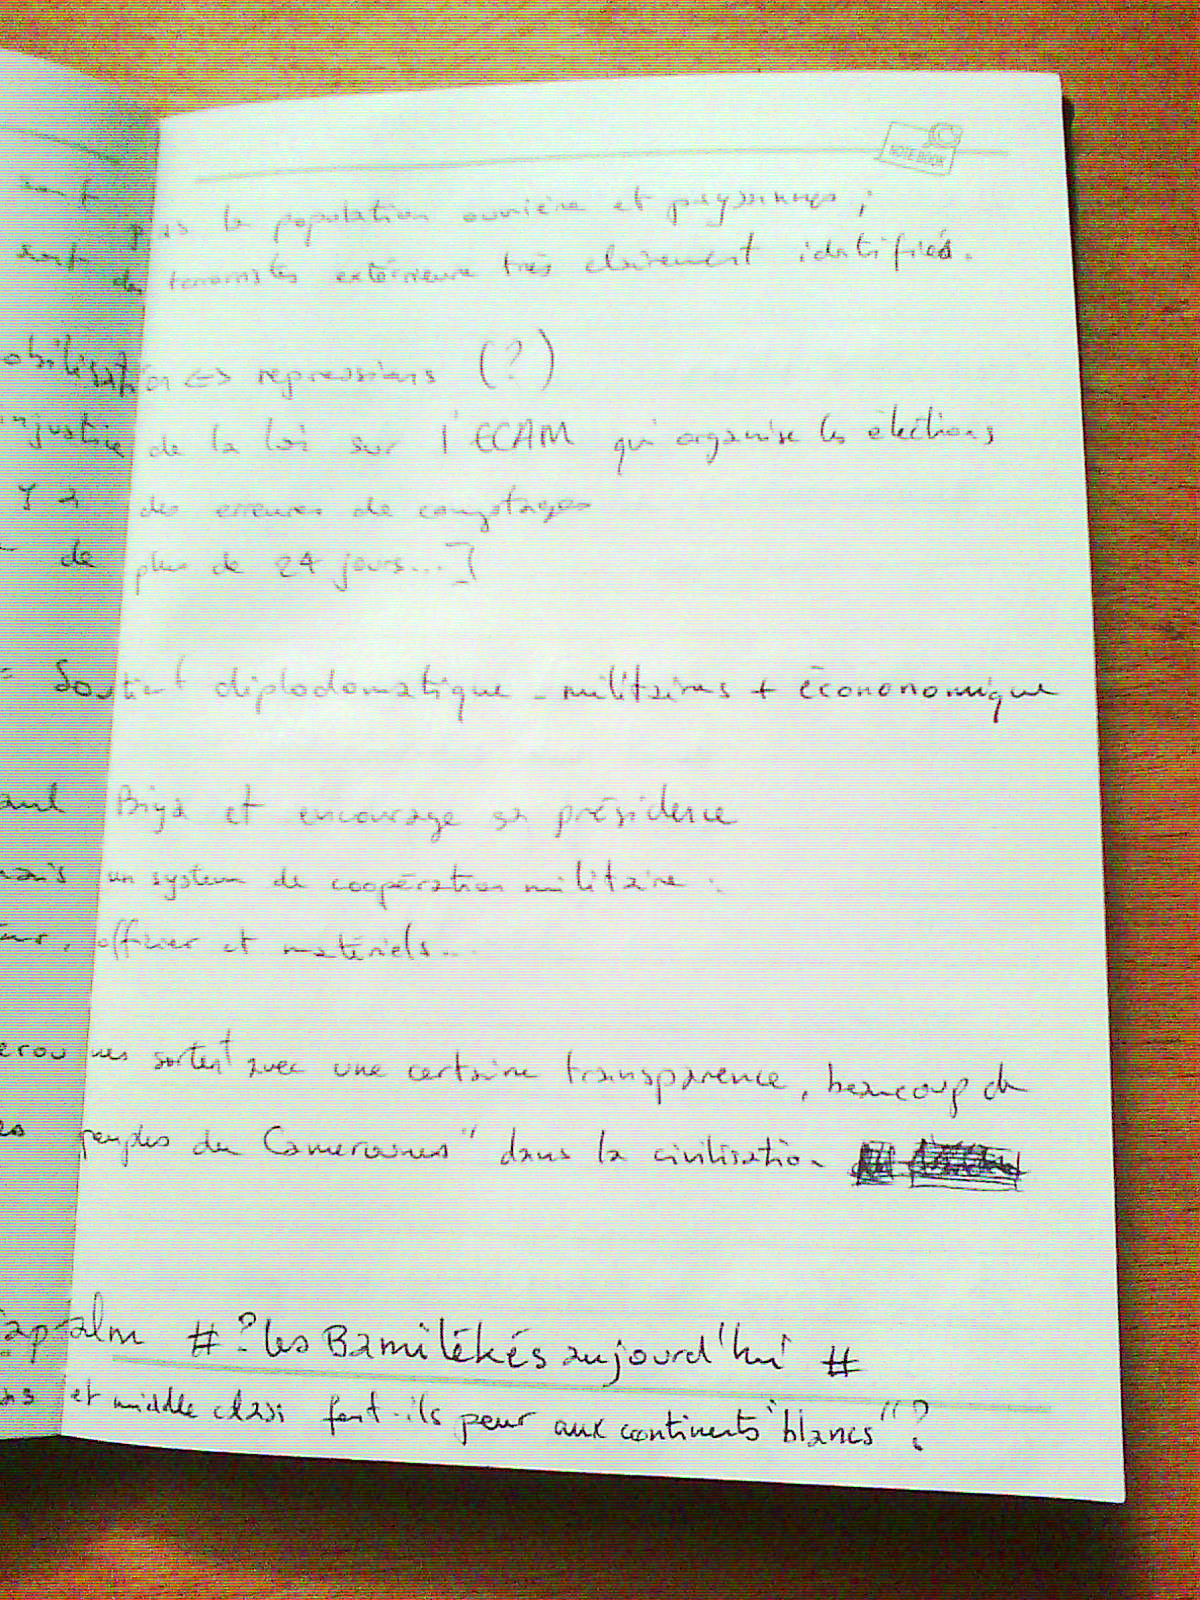 NOTE BOOK
pas la population ouvrière et paysannes ;
des terroristes extérieure très clairement idatifiés.
obilisation <-> repressions (?)
injustice de la loi sur l'ECAM qui organise les élections
Y a des erreures de comptages
de plus de 24 jours...]
= Soutient diplodomatique - militaires + écononomique
aul Biya et encourage sa présidence
mais un system de coopération militaire :
officier et matériels...
erou nes sortent avec une certaine transparence, beaucoup de
es peuples du Camerounes" dans la civilisation
# ? les Bamilékés aujourd'hui #
ns et middle class font-ils peur aux continents "blancs" ?